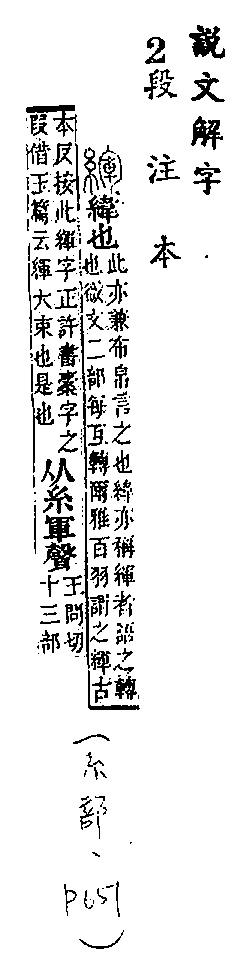 説文解字
2段注本
緷
緯也
此亦兼布帛言之也緯亦稱緷者語之轉
也微文二部每互轉爾雅百羽謂之緷古
本反按此緷字正許書㯻字之
叚借玉篇云緷大束也是也
从糸軍聲
王問切
十三部
(糸部、P651)